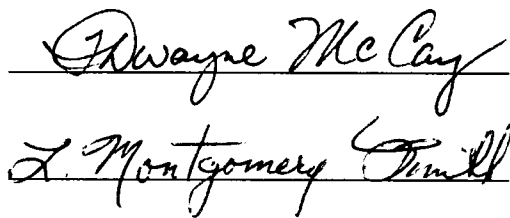 T Dwayne McCay
L. Montgomery Smith